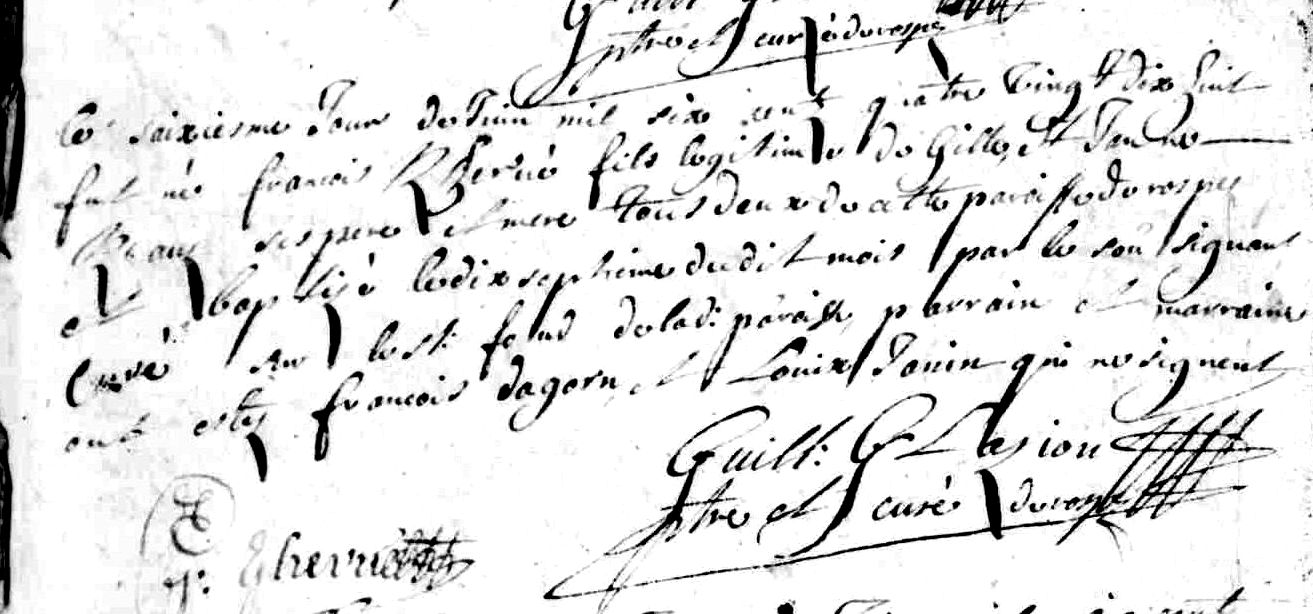 ptre et curé de rospez
le saixiesme Jour de Juin mil six cent quatre vingt dix huit
fut né francois Kherué fils legitime de Gilles et Janne
ses pere et mere tous deux de cette paroisse de rospez
et baptisé le dix septieme du dit mois par le sou signant
Curé sur les st. fond de lad. paroisse, parrain et marraine
ont estes francois dagorn, et Louix Janin qui ne signent
Guill: Lasion
ptre et curé de rospez